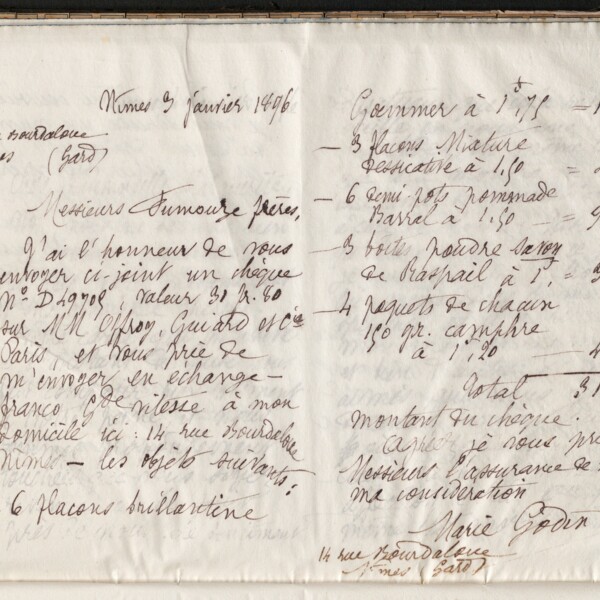 Nimes 3 janvier 1896
Bourdaloue
(Gard)
Messieurs Fumouze frères,
J'ai l'honneur de vous
envoyer ci-joint un chèque
N° D 49705, valeur 30 fr. 80
sur MM Offroy, Guiard et Cie
Paris, et vous prie de
m'envoyer en échange —
franco Gde vitesse à mon
domicile ici : 14 rue Bourdaloue
Nimes — les objets suivants :
6 flacons brillantine
Gommer à 1f,75 =
— 3 flacons Mixture
dessicative à 1.50 =
— 6 demi-pots pommade
Barral à 1.50 — 9
— 3 boites poudre savon
de Raspail à 1f. = 3
— 4 paquets de chacun
150 gr. camphre
à 1f,20 — 4
Total 31
montant du chèque.
Agréez je vous prie
Messieurs l'assurance de
ma considération
Marie Godin
14 rue Bourdaloue
Nimes (Gard)